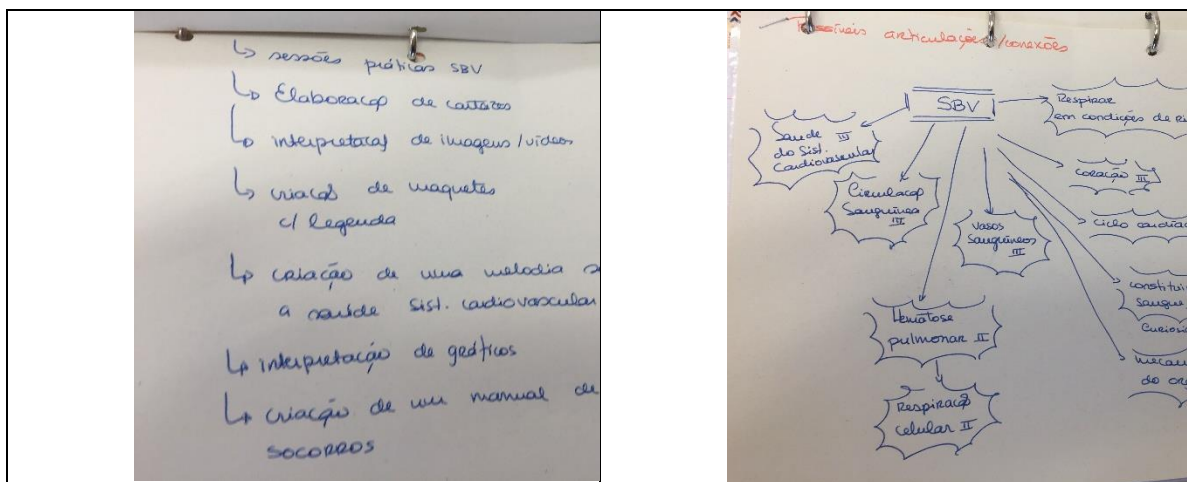 ↳ sessões práticas SBV
↳ Elaboração de cartazes
↳ interpretação de imagens/vídeos
↳ criação de maquetes
c/ legenda
↳ criação de uma melodia
a saúde sist. cardiovascular
↳ interpretação de gráficos
↳ criação de um manual de
SOCORROS
Possíveis articulações/conexões
SBV
Respirar
em condições de
Saúde III
do Sist.
Cardiovascular
coração III
Circulação
Sanguínea
III
vasos
Sanguíneos
III
ciclo
Hematose
pulmonar II
sangue
do
Respiração
celular II